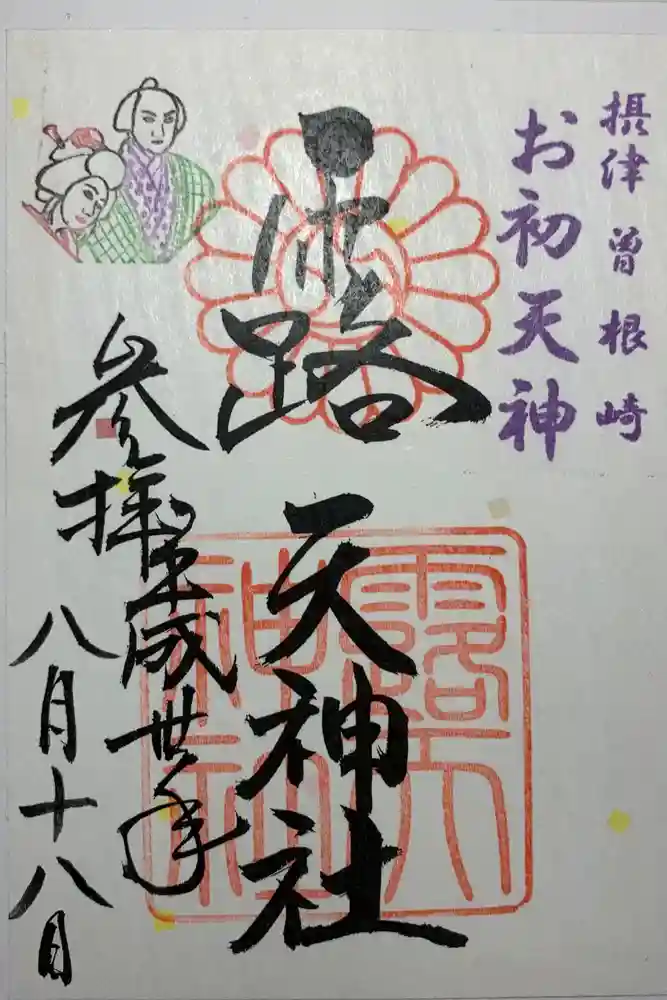 摂津 曽根崎
お初天神
露天神社
参拝 平成 丗年
八月十八日
露天
神社